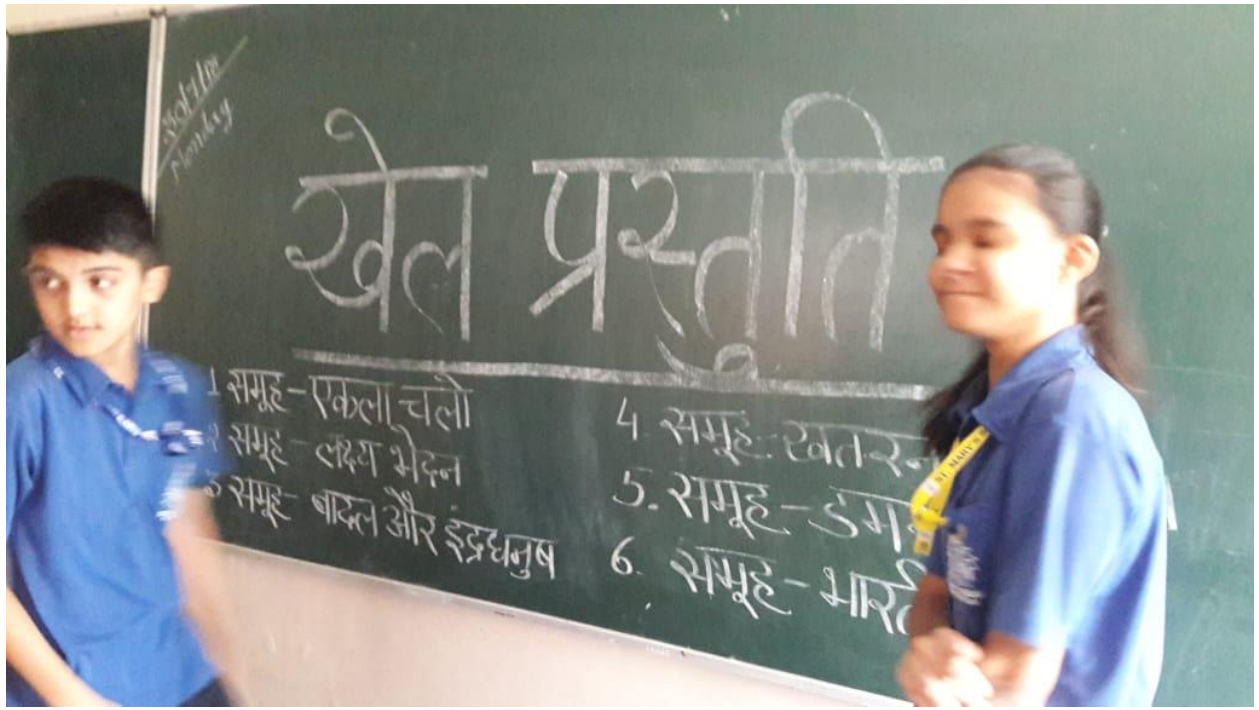 30/7/18
Monday
खेल प्रस्तुति
1 समूह - एकला चलो
2 समूह - लक्ष्य भेदन
3 समूह - बादल और इंद्रधनुष
4. समूह -
5. समूह -
6. समूह -
ST. MARY'S